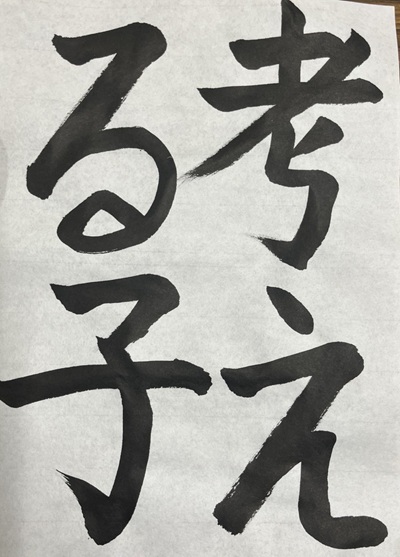 考え
る子